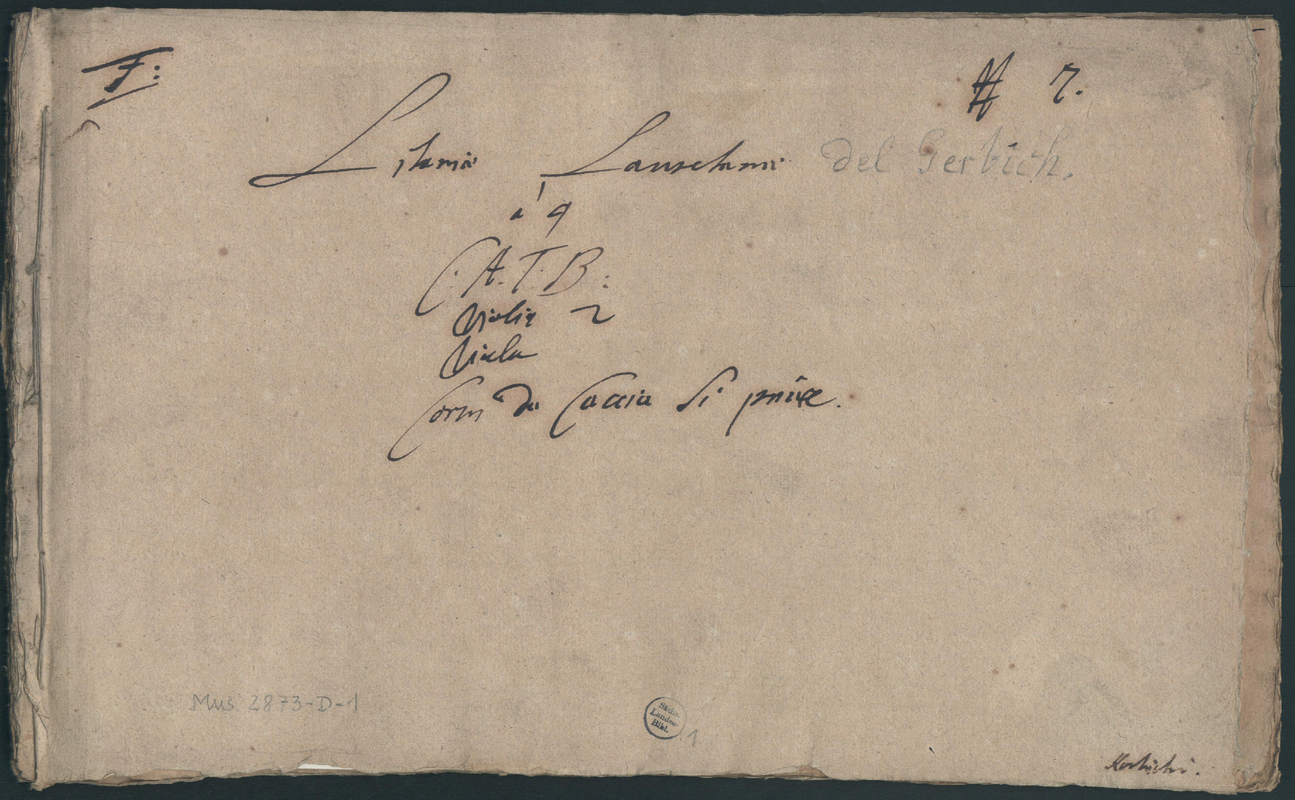 F:
# 7.
Litaniæ Lauretanæ del Gerbich.
a 9
C. A. T. B:
Violin 2
Viola
Corn da Caccia Si
Mus 2873-D-1
Sächs.
Landes-
Bibl.
1